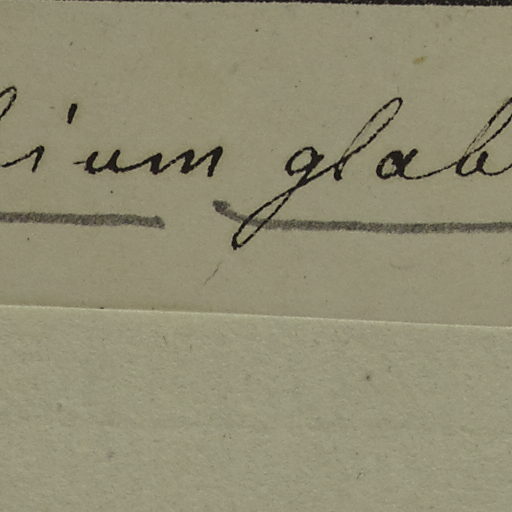 lium glab